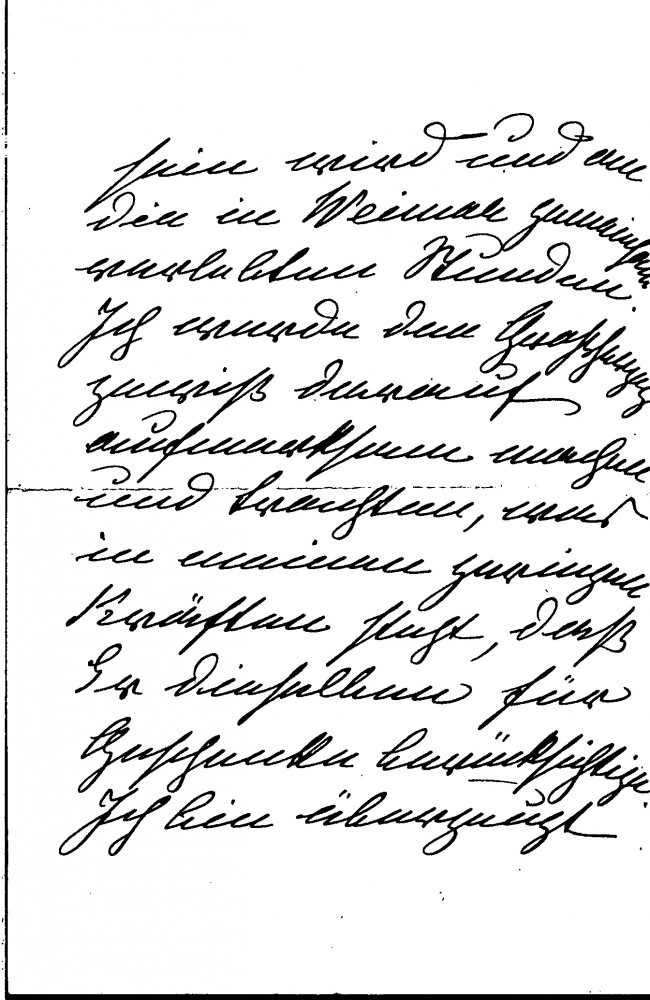 sein wird und an
die in Weimar gemeinsam
verlebten Stunden.
Ich werde den Großherzog
gewiß darauf
aufmerksam machen
und trachten, was
in meinen geringen
Kräften steht, daß
Er dieselben für
Geschenke berücksichtige.
Ich bin überzeugt